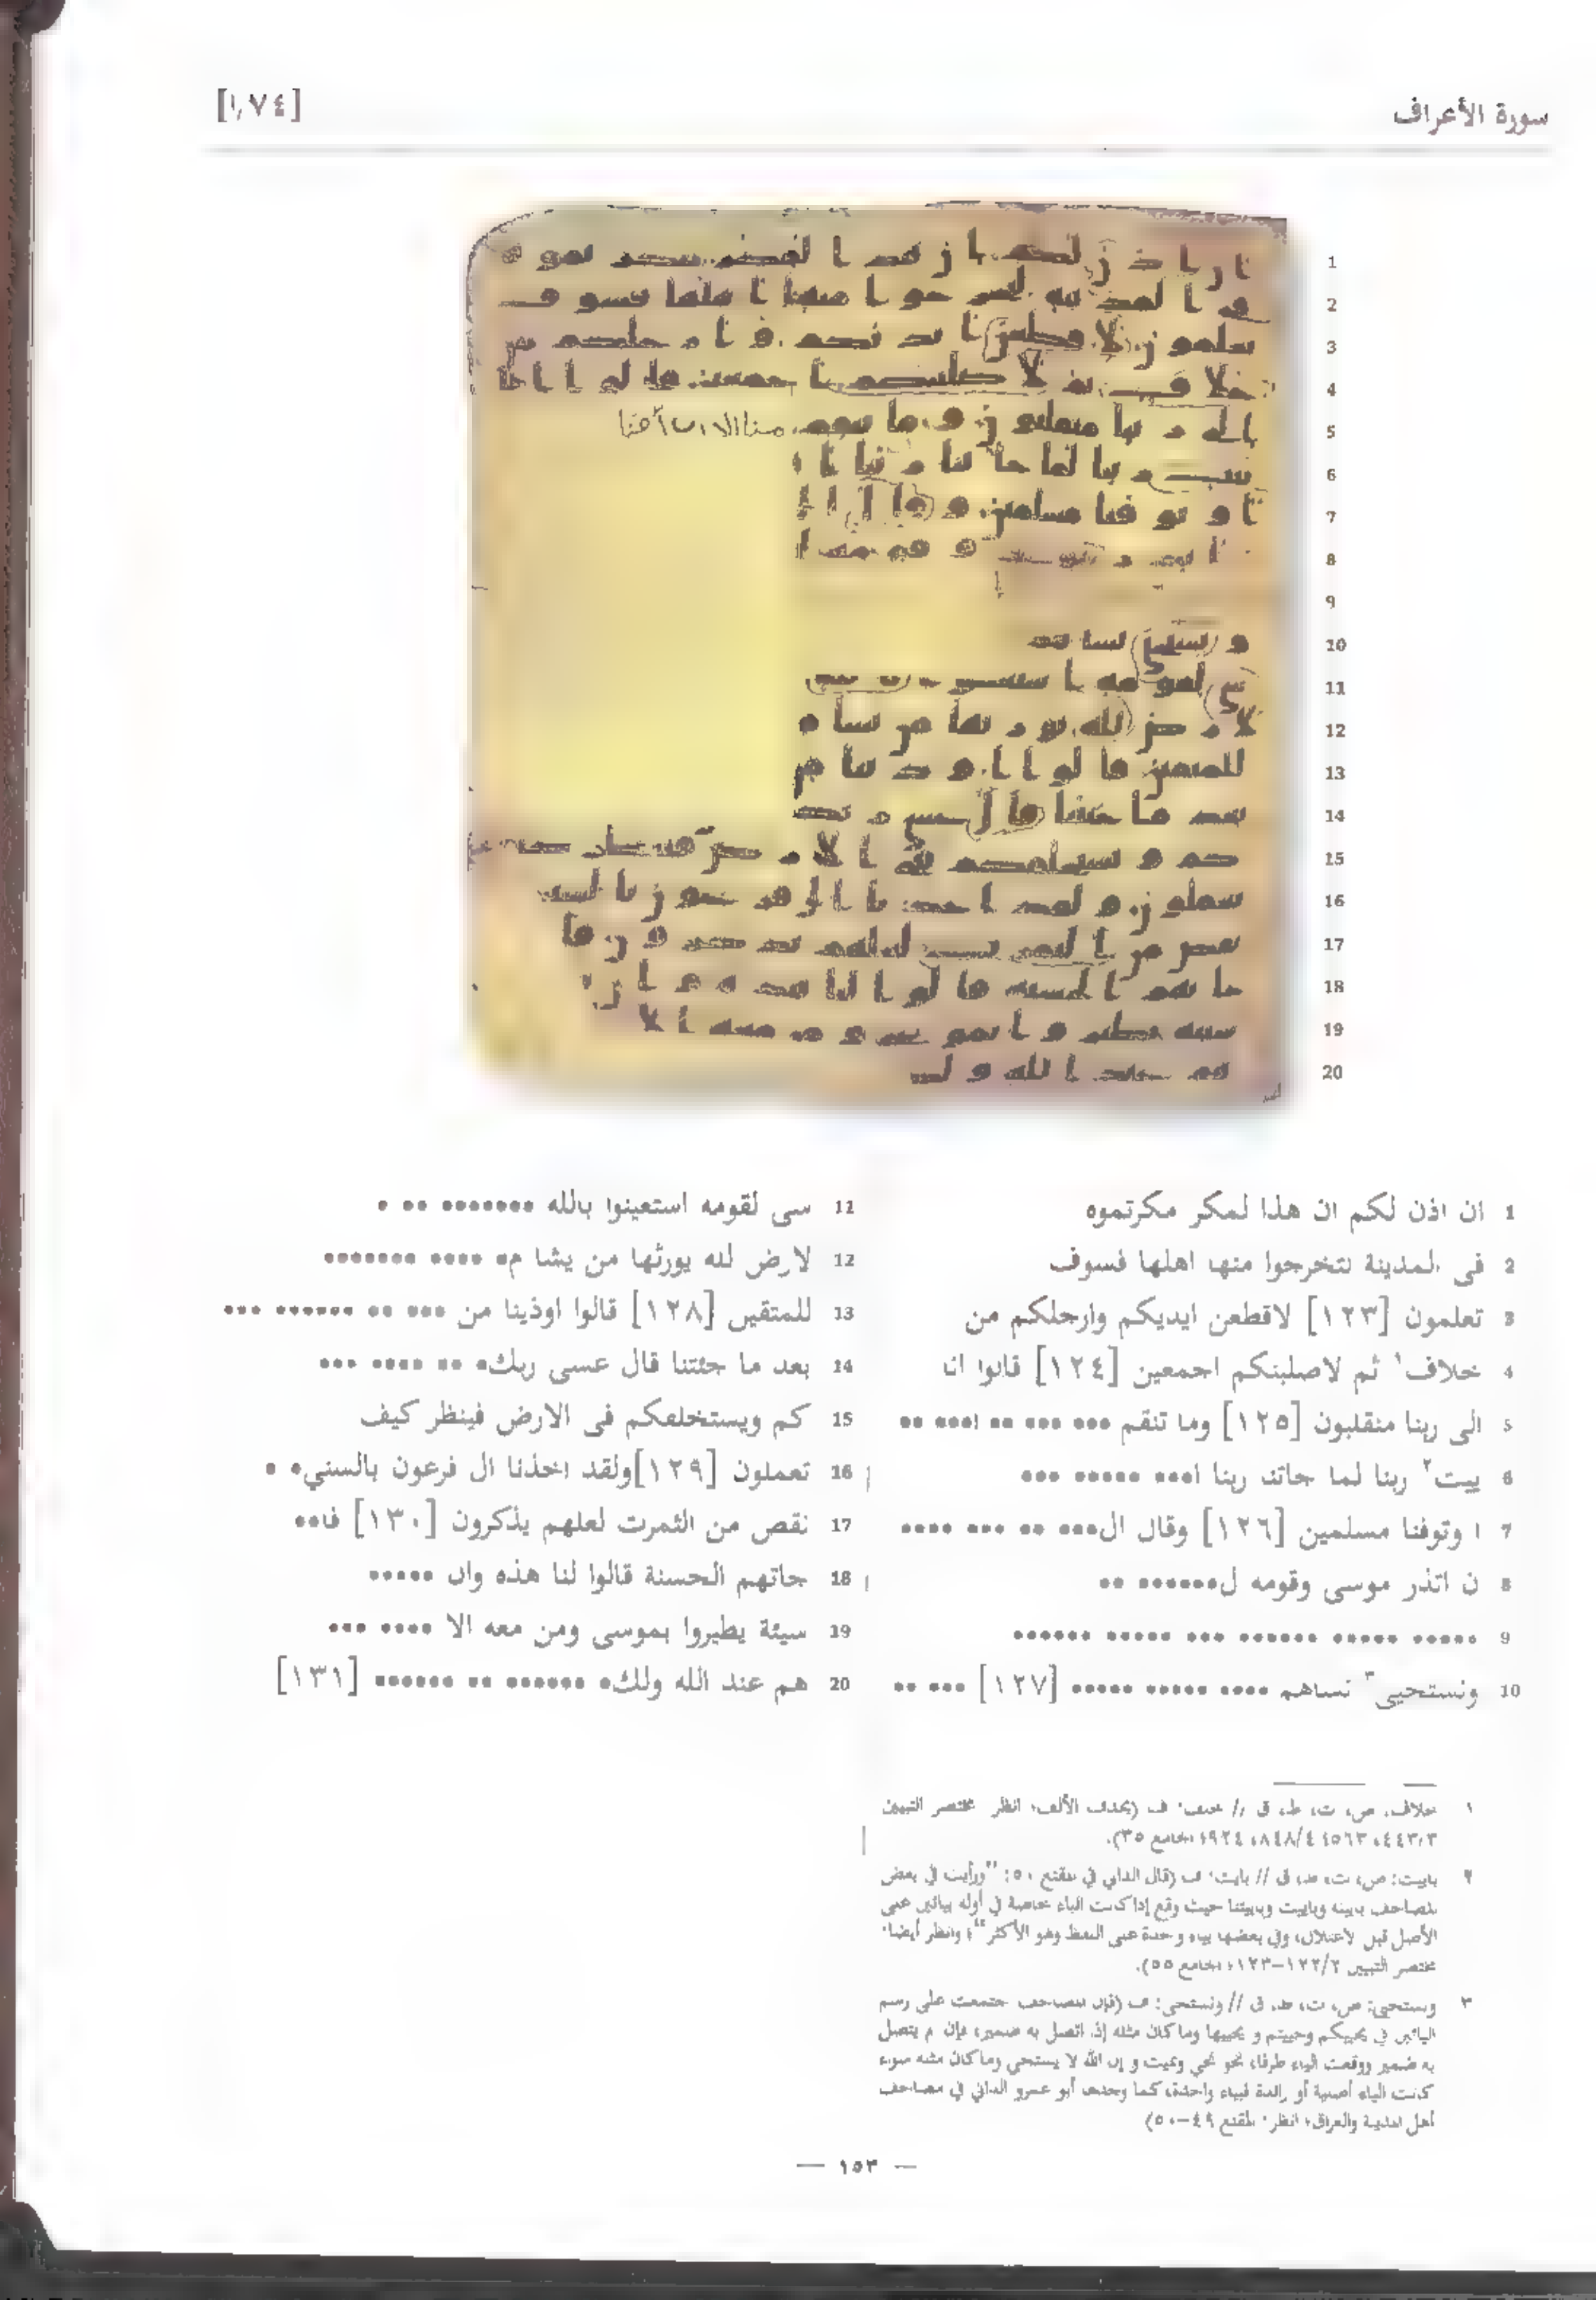 سورة الأعراف
[١،٧٤]
1 ان اذن لكم ان هذا لمكر مكرتموه
2 فى المدينة لتخرجوا منها اهلها فسوف
3 تعلمون [١٢٣] لاقطعن ايديكم وارجلكم من
4 خلاف١ ثم لاصلبنكم اجمعين [١٢٤] قالوا انا
5 الى ربنا منقلبون [١٢٥] وما تنقم ••• ••• •• ا••• ••
6 ييت٢ ربنا لما جاتنا ربنا ا••• ••••• •••
7 ا وتوفنا مسلمين [١٢٦] وقال ال••• •• ••• ••••
8 ن اتذر موسى وقومه ل•••••• ••
9 ••••• ••••• •••••• ••• ••••• ••••••
10 ونستحيى٣ نساهم •••• ••••• ••••• [١٢٧] ••• ••
11 سى لقومه استعينوا بالله ••••••• •• •
12 لارض لله يورثها من يشا م• •••• •••••••
13 للمتقين [١٢٨] قالوا اوذينا من ••• •• •••••• •••
14 بعد ما جئتنا قال عسى ربك• •• •••• •••
15 كم ويستخلفكم فى الارض فينظر كيف
16 تعملون [١٢٩] ولقد اخذنا ال فرعون بالسني• •
17 نقص من الثمرت لعلهم يذكرون [١٣٠] فا••
18 جاتهم الحسنة قالوا لنا هذه وان •••••
19 سيئة يطيروا بموسى ومن معه الا •••• •••
20 هم عند الله ولك• •••••• •• •••••• [١٣١]
١ خلاف: ص، ت، ط، ق // خلف: ف (بحذف الألف؛ انظر مختصر التبيين
٤٤٣/٣، ٥٦٣؛ ٨٤٨/٤، ٩٢٤؛ الجامع ٣٥).
٢ باييت: ص، ت، ط، ق // بايت: ف (قال الداني في المقنع ٥٠: "ورأيت في بعض
المصاحف باييه وباييت وباييتنا حيث وقع إذا كانت الباء خاصة في أوله بيائين على
الأصل قبل الاعتلال، وفي بعضها بياء واحدة على اللفظ وهو الأكثر"؛ وانظر أيضا:
مختصر التبيين ١٢٢/٢–١٢٣؛ الجامع ٥٥).
٣ ونستحيى: ص، ت، ط، ق // ونستحى: ف (فإن المصاحف اجتمعت على رسم
اليائين في يحييكم وحييتم و يحييها وما كان مثله إذا اتصل به ضمير، فإن لم يتصل
به ضمير ووقعت الياء طرفا، نحو نحي ونميت و إن الله لا يستحي وما كان مثله سواء
كانت الياء أصلية أو زائدة فبياء واحدة، كما وجدها أبو عمرو الداني في مصاحف
أهل المدينة والعراق؛ انظر: المقنع ٤٩–٥٠)
— ١٥٣ —